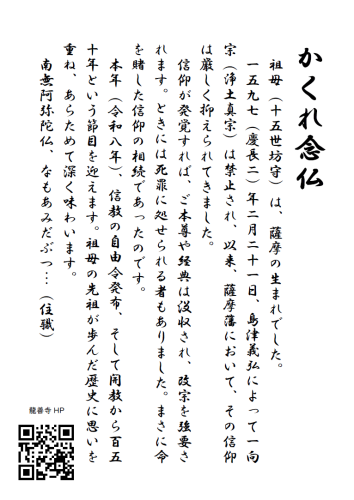 かくれ念仏
祖母（十五世坊守）は、薩摩の生まれでした。
一五九七（慶長二）年二月二十一日、島津義弘によって一向
宗（浄土真宗）は禁止され、以来、薩摩藩において、その信仰
は厳しく抑えられてきました。
信仰が発覚すれば、ご本尊や経典は没収され、改宗を強要さ
れます。ときには死罪に処せられる者もありました。まさに命
を賭した信仰の相続であったのです。
本年（令和八年）、信教の自由令発布、そして開教から百五
十年という節目を迎えます。祖母の先祖が歩んだ歴史に思いを
重ね、あらためて深く味わいます。
南無阿弥陀仏、なもあみだぶつ…（住職）
龍善寺 HP